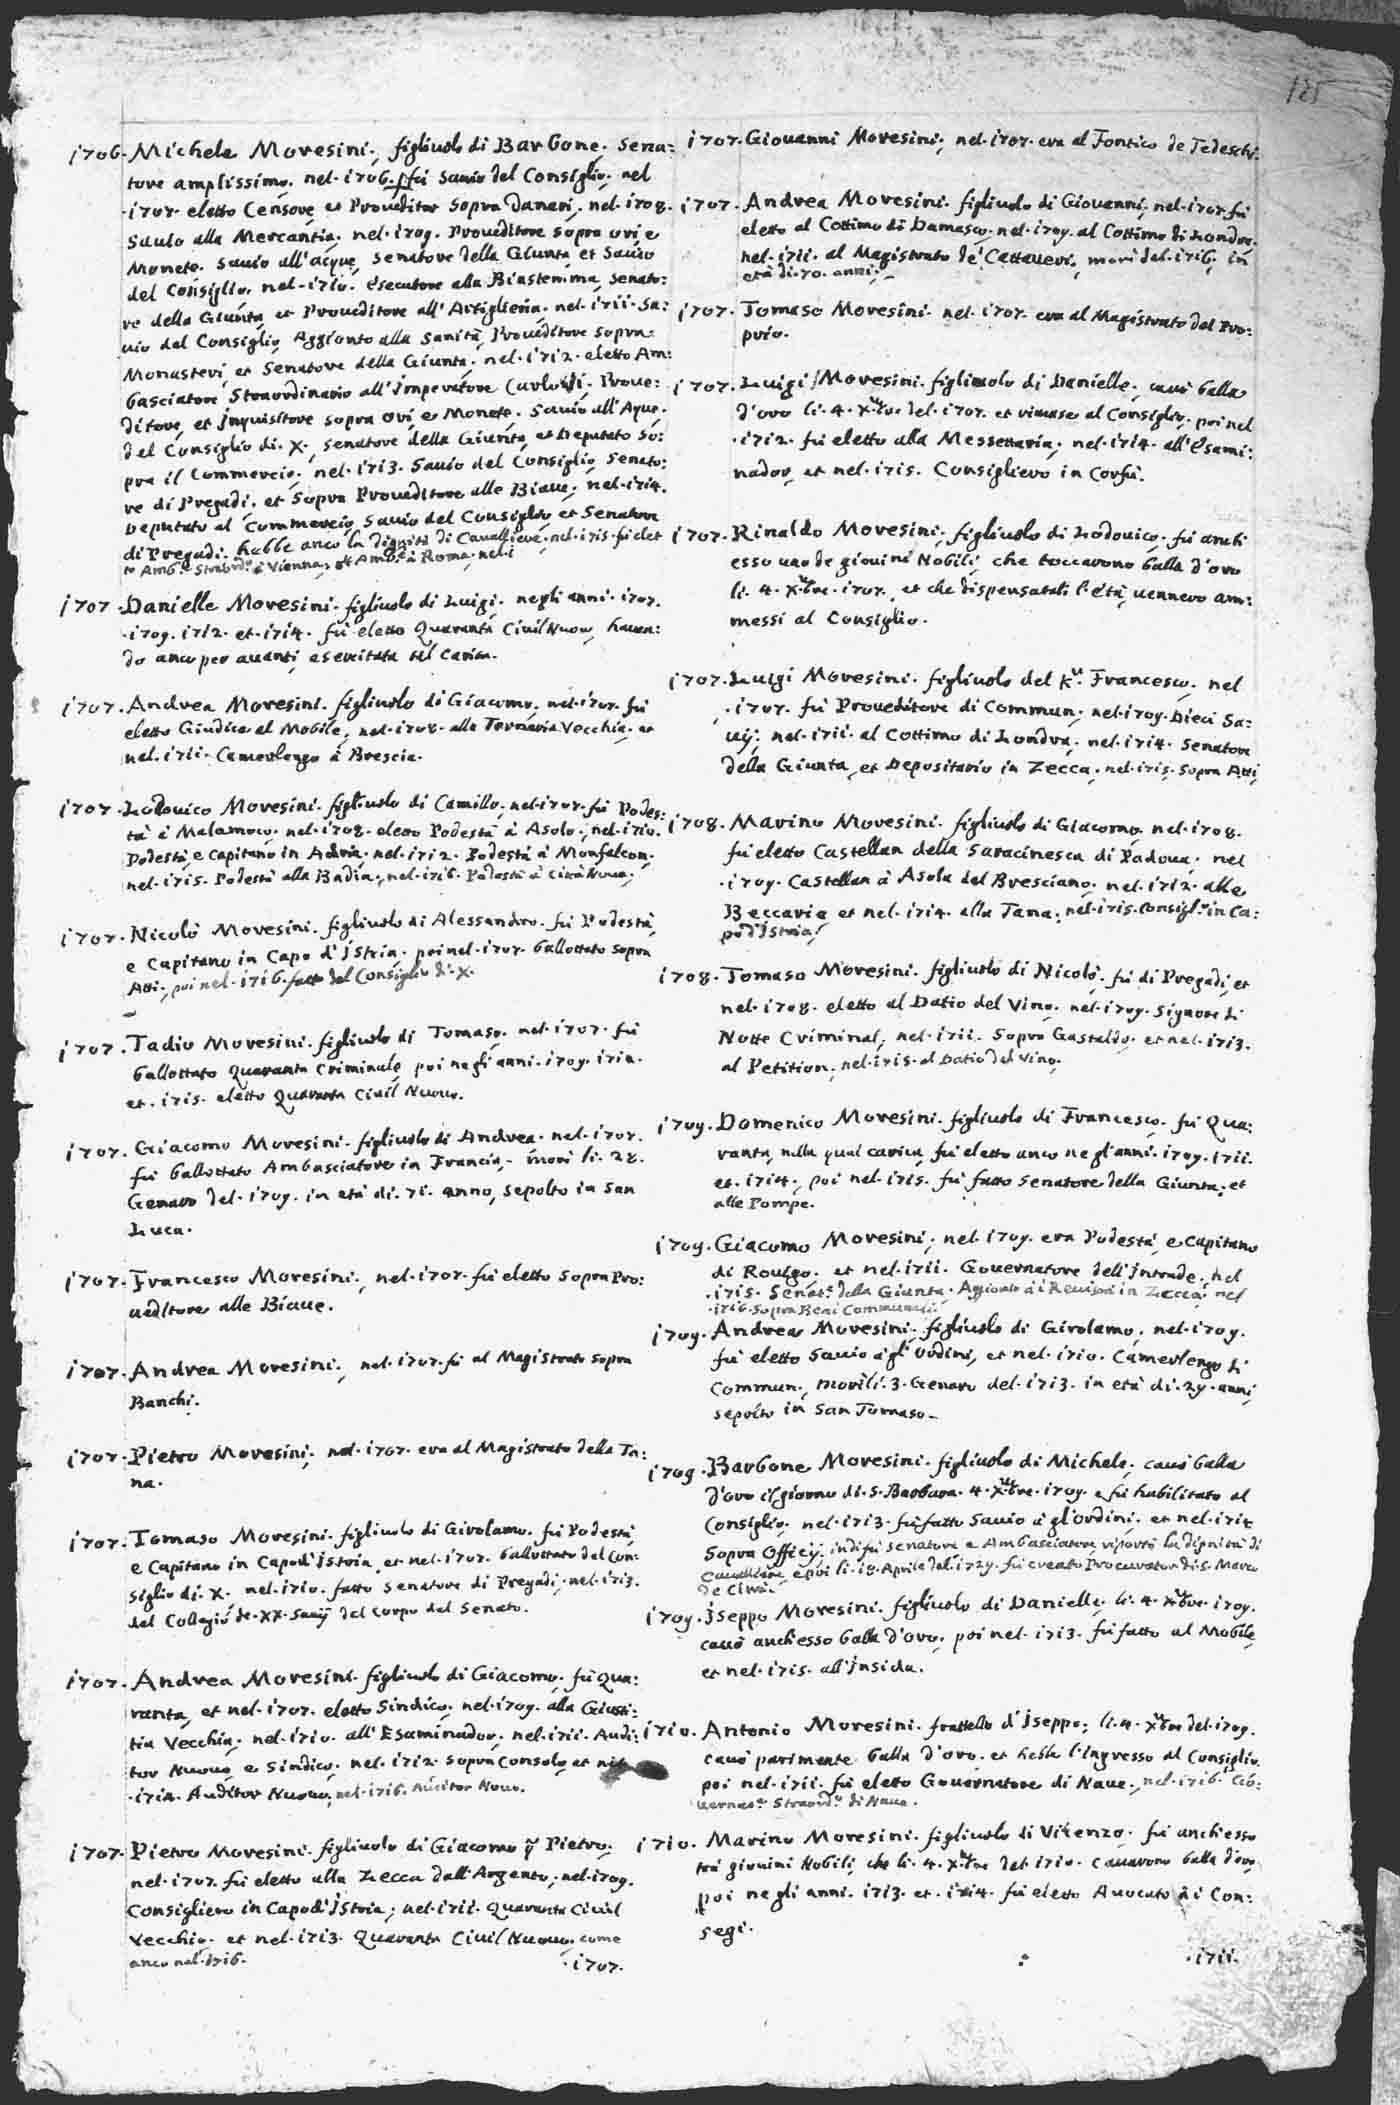 125
1706. Michele Moresini, figliuolo di Barbone, Sena:
tore amplissimo. nel. 1706. fù Sauio del Consiglio. nel
.1707. eletto Censore, et Proueditor Sopra danari, nel. 1708.
Sauio alla Mercantia. nel. 1709. Proueditore sopra ori e
Monete. Sauio all'acque, senatore della Giunta et Sauio
del Consiglio. nel. 1710. esecutore alla Biastemma, senato:
re della Giunta, et Proueditore all'Artiglieria. nel. 1711. Sa:
uio del Consiglio, Aggionto alla Sanità, Proueditore sopra
Monasteri, et Senatore della Giunta. nel. 1712. eletto Am:
basciatore Straordinario all'Imperatore Carlo VI. Proue:
ditore, et Inquisitore sopra Ori, e Monete. Sauio all'Aque.
del Consiglio di. X., senatore della Giunta, et Deputato so:
pra il Commercio. nel. 1713. Sauio del Consiglio, Senato:
re di Pregadi. et sopra Proueditore alle Biaue, nel. 1714.
Deputato al Commercio, Sauio del Consiglio, et Senatore
di Pregadi. hebbe anco la dignità di Cavalliere. nel. 1715. fù elet
to Amb.re Straord.o à Vienna, et Amb.re à Roma. nel. 1
1707. Danielle Moresini. figliuolo di Luigi. negli anni. 1707.
.1709. 1712. et. 1714. fù eletto Quaranta Ciuil Nuouo, hauen:
do anco per auanti, esercitata tal Carica.
1707. Andrea Moresini. figliuolo di Giacomo, nel. 1707. fù
eletto Giudice al Mobile, nel. 1708. alla Ternaria Vecchia, et
nel. 1711. Camerlengo à Brescia.
1707. Lodouico Moresini. figliuolo di Camillo, nel. 1707. fù Podes:
tà à Malamoco. nel. 1708. eletto Podestà à Asolo., nel. 1710.
Podestà, e Capitano in Adria. nel. 1712. Podestà à Monfalcon.
nel. 1715. Podestà alla Badia., nel. 1716. Podestà à Città Noua.
1707. Nicolò Moresini. figliuolo di Alessandro. fù Podestà,
e Capitano in Capo d'Istria. poi nel. 1707. ballottato sopra
Atti., poi nel. 1716. fatto del Consiglio di. X.
1707. Tadio Moresini. figliuolo di Tomaso. nel. 1707. fù
ballottato Quaranta Criminale, poi negli anni. 1709. 1712.
et. 1715. eletto Quaranta Ciuil Nuouo.
1707. Giacomo Moresini. figliuolo di Andrea. nel. 1707.
fù ballottato Ambasciatore in Francia,. morì li. 28.
Genaro del. 1709. in età di. 71. anno, sepolto in San
Luca.
1707. Francesco Moresini., nel. 1707. fù eletto sopra Pro:
ueditore alle Biaue.
1707. Andrea Moresini., nel. 1707. fù al Magistrato sopra
Banchi.
1707. Pietro Moresini. nel. 1707. era al Magistrato della Ta:
na.
1707. Tomaso Moresini. figliuolo di Girolamo. fù Podestà,
e Capitano in Capo d'Istria, et nel. 1707. ballottato del Con:
siglio di. X. nel. 1710. fatto senatore di Pregadi, nel. 1713.
del Collegio de. XX. Sauij del Corpo del Senato.
1707. Andrea Moresini. figliuolo di Giacomo. fù Qua:
ranta, et nel. 1707. eletto Sindico. nel. 1709. alla Giusti:
tia Vecchia. nel. 1710. all'Esaminador, nel. 1711. Audi:
tor Nuouo, e Sindico. nel. 1712. sopra Consoli, et nel
.1714. Auditor Nuouo, nel. 1716. Auditor Nouo.
1707. Pietro Moresini. figliuolo di Giacomo q. Pietro.
nel. 1707. fù eletto alla Zecca dell'Argento, nel. 1709.
Consigliero in Capo d'Istria, nel. 1711. Quaranta Ciuil
Vecchio. et nel. 1713. Quaranta Ciuil Nuouo. come
anco nel. 1716.
.1707.
1707. Giouanni Moresini, nel. 1707. era al Fontico de Tedeschi.
1707. Andrea Moresini. figliuolo di Giouanni, nel. 1707. fù
eletto al Cottimo di Damasco. nel. 1709. al Cottimo di Londra.
nel. 1711. al Magistrato de' Cattaueri, morì del. 1716. in
età di. 70. anni.
1707. Tomaso Moresini. nel. 1707. era al Magistrato del Pro:
prio.
1707. Luigi Moresini. figliuolo di Danielle, cauò balla
d'oro li. 4. Xbre del. 1707. et rimase al Consiglio. poi nel
.1712. fù eletto alla Messettaria, nel. 1714. all'Esami:
nador, et nel. 1715. Consigliero in Corfù.
1707. Rinaldo Moresini, figliuolo di Lodouico. fù anch
esso uno de giouini Nobili, che toccarono balla d'oro
li. 4. Xbre. 1707., et che dispensatali l'età, uennero am:
messi al Consiglio.
1707. Luigi Moresini. figliuolo del K.r Francesco. nel
.1707. fù Proueditore di Commun, nel. 1709. Dieci Sa:
uij, nel. 1711. al Cottimo di Londra, nel. 1714. senatore
della Giunta, et Depositario in Zecca, nel. 1715. sopra Atti.
1708. Marino Moresini. figliuolo di Giacomo, nel. 1708.
fù eletto Castellan della Saracinesca di Padoua, nel
.1709. Castellan à Asola del Bresciano. nel. 1712. alle
Beccarie et nel. 1714. alla Tana, nel. 1715. Consigl.r in Ca:
po d'Istria.
1708. Tomaso Moresini. figliuolo di Nicolò. fù di Pregadi, et
nel. 1708. eletto al Datio del Vino. nel. 1709. Signore di
Notte Criminal, nel. 1711. Sopra Gastaldo. et nel. 1713.
al Petition, nel. 1715. al Datio del Vino.
1709. Domenico Moresini. figliuolo di Francesco. fù Qua:
ranta, nella qual carica fù eletto anco negl'anni. 1709. 1711.
et. 1714., poi nel. 1715. fù fatto senatore della Giunta. et
alle Pompe.
1709. Giacomo Moresini, nel. 1709. era Podestà, e Capitano
di Rouigo. et nel. 1711. Gouernatore dell'Intrade, nel
.1715. Senat.r della Giunta. Aggionto à i Reuisori in Zecca. nel
.1716. sopra Beni Communali.
1709. Andrea Moresini. figliuolo di Girolamo. nel. 1709.
fù eletto Sauio à gl'Ordini, et nel. 1710. Camerlengo di
Commun., morì li. 3. Genaro del. 1713. in età di. 29. anni,
sepolto in San Tomaso.
1709. Barbone Moresini. figliuolo di Michele, cauò balla
d'oro il giorno di. S. Barbara. 4. Xbre. 1709. e fù habilitato al
Consiglio. nel. 1713. fù fatto Sauio à gl'ordini. et nel. 1714
Sopra Officij. indi fù senatore e Ambasciatore riportò la dignità di
Cavalliere, e poi li. 18. Aprile del. 1729. fù creato Procurator di S. Marco
de Citra.
1709. Iseppo Moresini. figliuolo di Danielle, li. 4. Xbre. 1709.
cauò anch'esso balla d'oro, poi nel. 1713. fù fatto al Mobile,
et nel. 1715. all'Insida.
1710. Antonio Moresini. frattello d'Iseppo, li. 4. Xbre del. 1709.
cauò parimente balla d'oro. et hebbe l'Ingresso al Consiglio.
poi nel. 1711. fù eletto Gouernatore di Naue., nel. 1716. Go:
uernat.r Straord.o di Naue.
1710. Marino Moresini. figliuolo di Vicenzo. fù anch'esso
trà giouini Nobili, che li. 4. Xbre del. 1710. cauarono balla d'oro,
poi negli anni. 1713. et. 1714. fù eletto Auocato à i Con:
segi.
.1711.